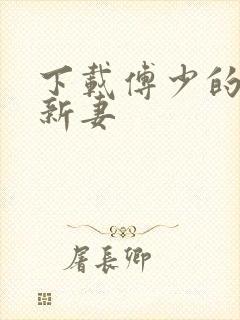 下載傅少的
新妻
屠長卿